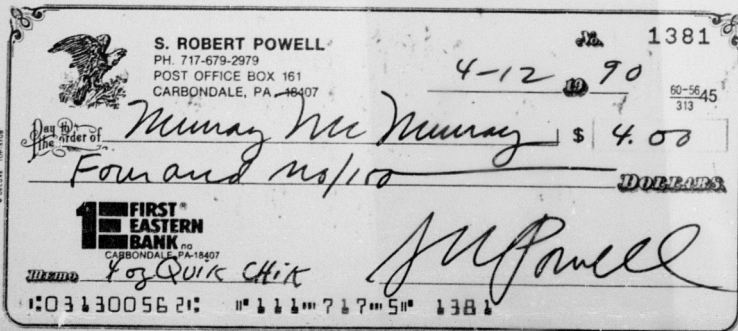 S. ROBERT POWELL
PH. 717-679-2979
POST OFFICE BOX 161
CARBONDALE, PA 18407
No. 1381
4-12 19 90
60-5645
313
Pay to the order of Murray Mc Murray $ 4.00
Four and no/100 DOLLARS
1E FIRST EASTERN BANK na
CARBONDALE, PA 18407
MEMO 4 oz QUIK CHIK
S R Powell
⑆031300562⑆ ⑈111⑉717⑉5⑈ 1381